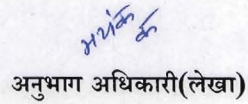 मयंक
अनुभाग अधिकारी(लेखा)